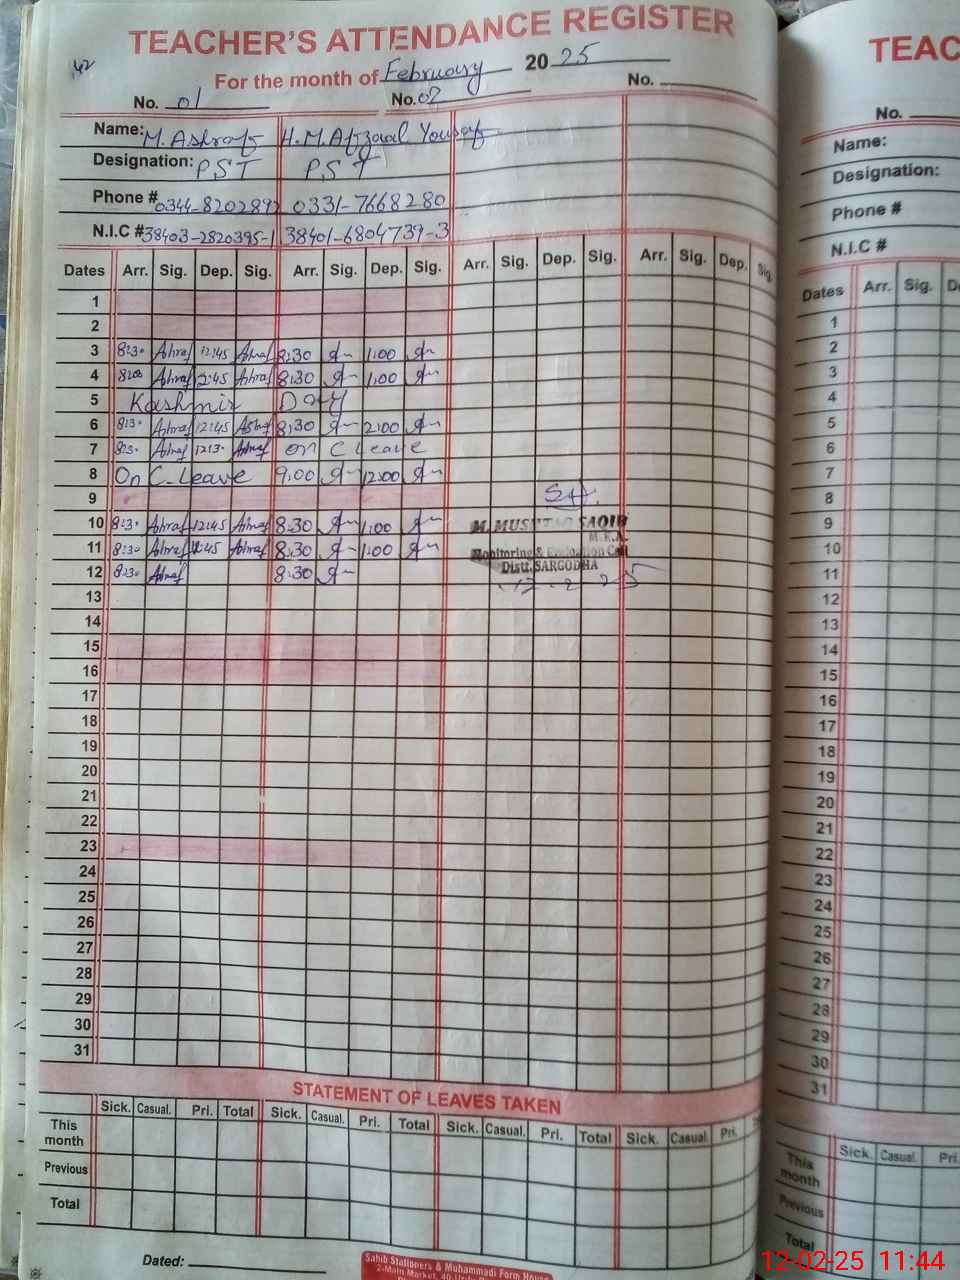 TEACHER'S ATTENDANCE REGISTER
42
For the month of February 2025
No. 01 No. 02 No.
Name: M. Ashraf H. M. Afzaal Yousaf
Designation: P.S.T P.S.T
Phone # 0344-8202892 0331-7668280
N.I.C # 38403-2820395-1 38401-6804739-3
Dates Arr. Sig. Dep. Sig. Arr. Sig. Dep. Sig. Arr. Sig. Dep. Sig. Arr. Sig. Dep. Sig.
1
2
3 8:30 Ashraf 12:45 Ashraf 8:30 1:00
4 Ashraf 12:45 Ashraf 8:30 1:00
5 Kashmir Day
6 8:30 Ashraf 12:45 Ashraf 8:30 2:00
7 8:30 Ashraf 12:30 Ashraf on C Leave
8 On C. Leave 9:00 12:00
9
10 8:30 Ashraf 12:45 Ashraf 8:30 1:00
11 8:30 Ashraf 12:45 Ashraf 8:30 1:00
12 8:30 Ashraf 8:30
M. MUSHTAQ SAQIB
M.E.A.
Monitoring & Evaluation Cell
Distt. SARGODHA
12-2-25
13
14
15
16
17
18
19
20
21
22
23
24
25
26
27
28
29
30
31
STATEMENT OF LEAVES TAKEN
Sick. Casual. Pri. Total Sick. Casual. Pri. Total Sick. Casual. Pri. Total Sick. Casual. Pri.
This month
Previous
Total
Dated:
Sahib Stationers & Muhammadi Form House
2-Main Market, 40
TEAC
No.
Name:
Designation:
Phone #
N.I.C #
Dates Arr. Sig.
1
2
3
4
5
6
7
8
9
10
11
12
13
14
15
16
17
18
19
20
21
22
23
24
25
26
27
28
29
30
31
Sick. Casual. Pri.
This month
Previous
Total
12-02-25 11:44